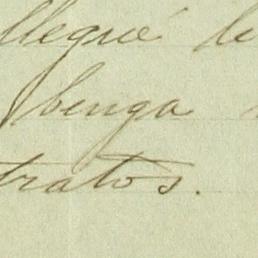 llegué le
benga
tratos.